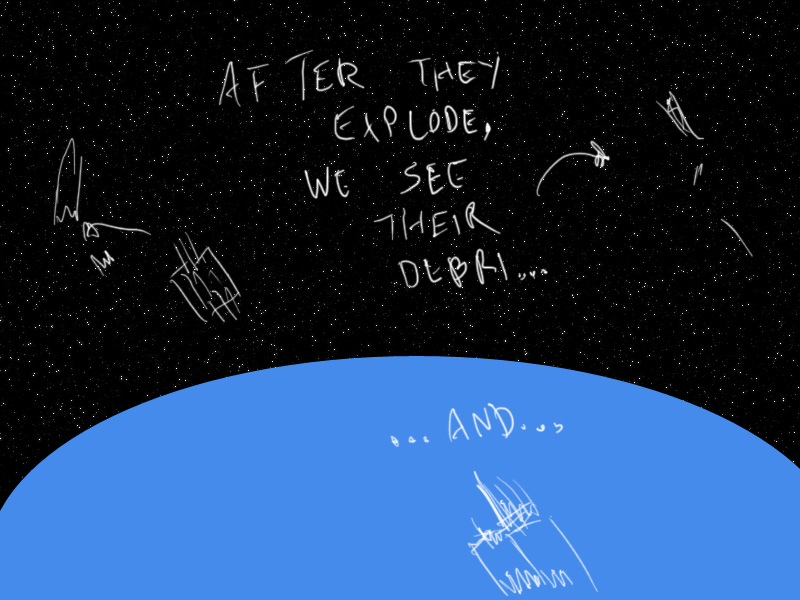 AFTER THEY
EXPLODE,
WE SEE
THEIR
DEBRI...
...AND...